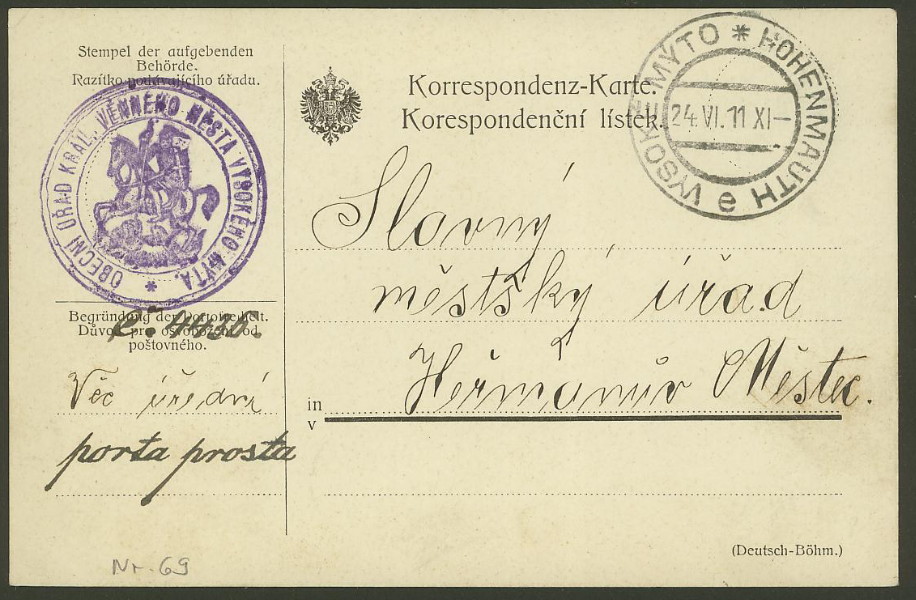 Stempel der aufgebenden
Behörde.
Razítko podávajícího úřadu.
OBECNÍ ÚŘAD KRÁL. VĚNNÉHO MĚSTA VYSOKÉHO MÝTA. *
Begründung der Portofreiheit.
Důvod pro osvobození od
poštovného.
Věc úřední
porta prosta
Nr. 69
Korrespondenz-Karte.
Korespondenční lístek.
VYSOKÉ MÝTO * HOHENMAUTH e
24.VI.11 XI—
Slavný
městský úřad
in
v
Heřmanův Městec.
(Deutsch-Böhm.)